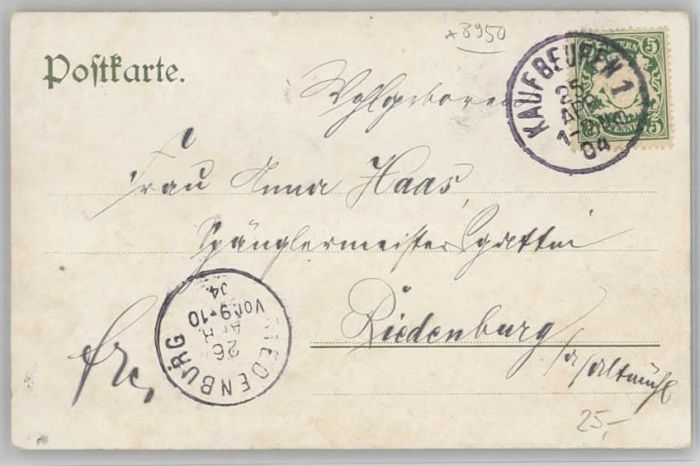 +3950
Postkarte.
KAUFBEUREN 1
25
APR
04
5 5
5 5
Wohlgeboren
Frau Anna Haas,
Spänglermeistersgattin
Riedenburg
a/Altmühl
RIEDENBURG
26
APR.
Vor. 9-10
04.
25,-